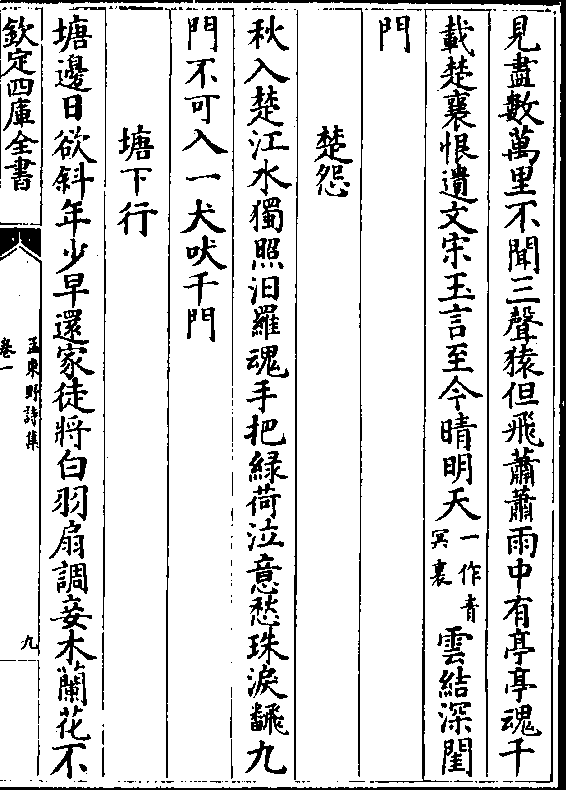 見盡數萬里不聞三聲猿但飛蕭蕭雨中有亭亭魂千
載楚襄恨遺文宋玉言至今晴明天一作青冥裏雲結深閨
門
楚怨
秋入楚江水獨照汨羅魂手把緑荷泣意愁珠淚飜九
門不可入一犬吠千門
塘下行
塘邊日欲斜年少早還家徒將白羽扇調妾木蘭花不
欽定四庫全書
孟東野詩集
卷一
九